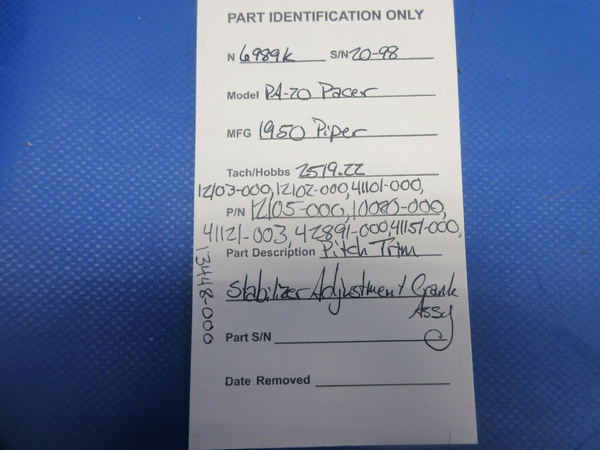 PART IDENTIFICATION ONLY
N 6989K S/N 20-98
Model PA-20 Pacer
MFG 1950 Piper
Tach/Hobbs 2519.22
12103-000, 12102-000, 41101-000,
P/N 12105-000, 10080-000,
41121-003, 42891-000, 41151-000,
13448-000
Part Description Pitch Trim
Stabilizer Adjustment Crank
Assy
Part S/N
Date Removed